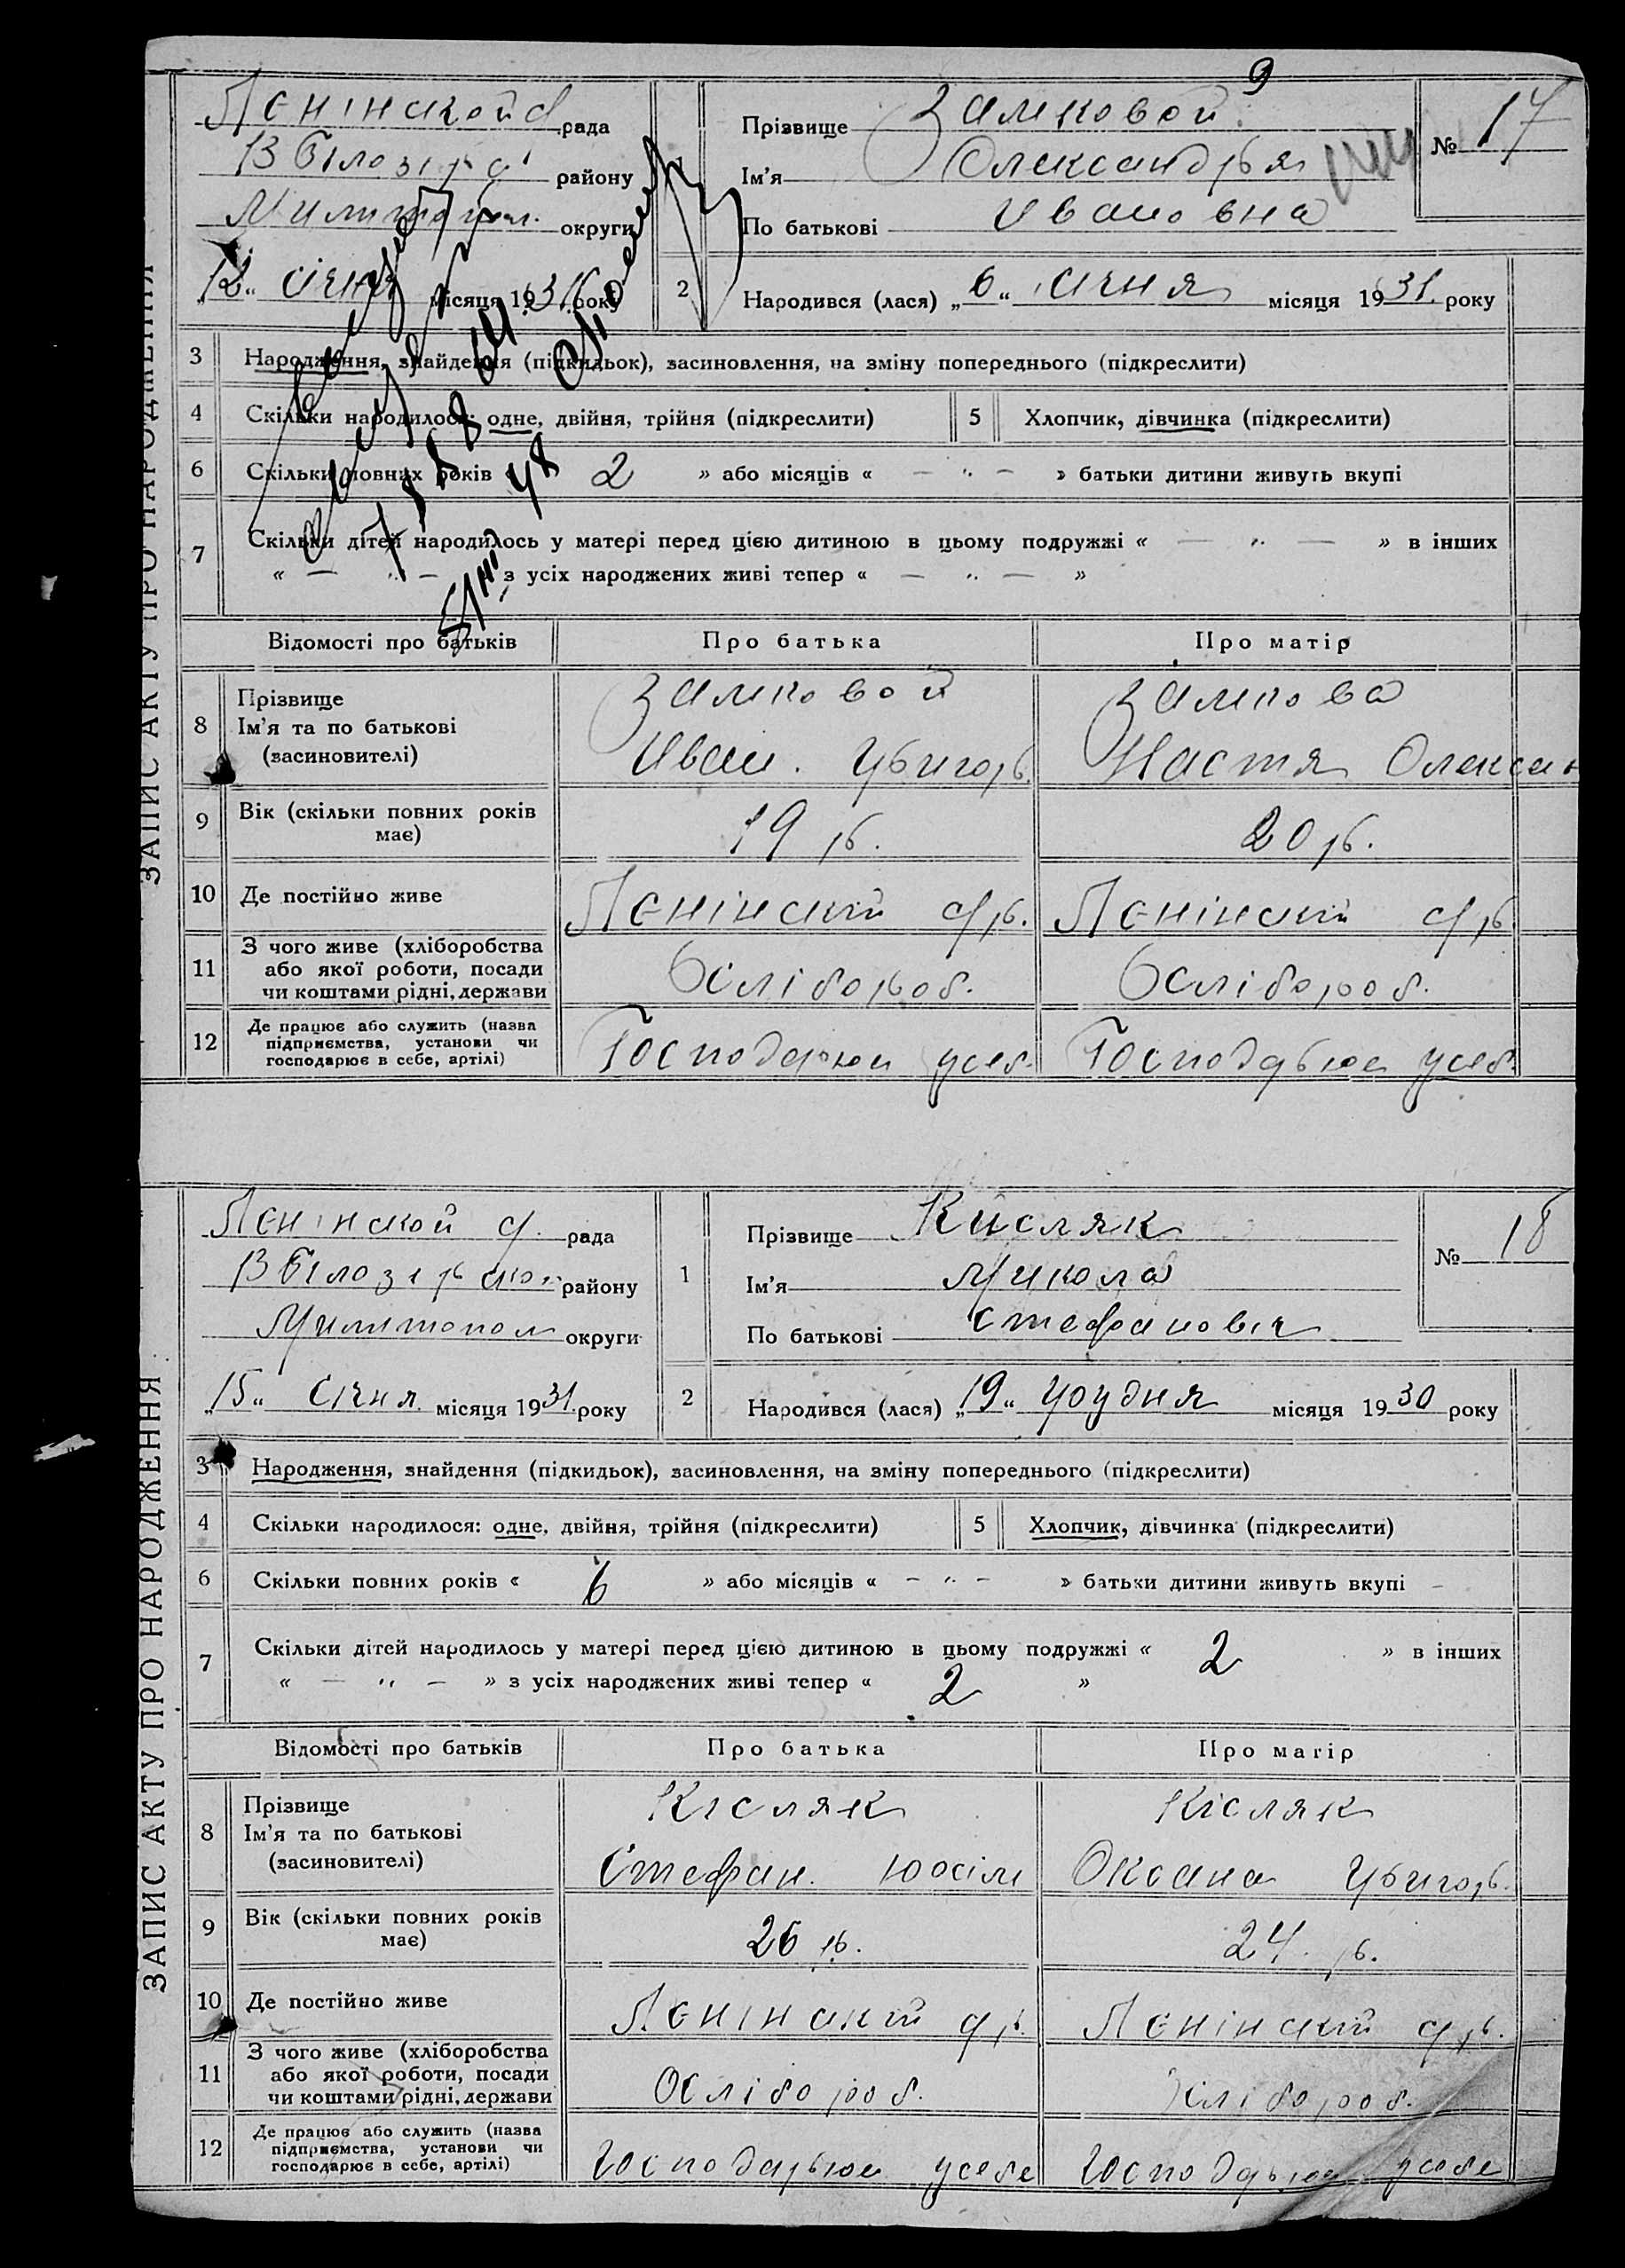 9
ЗАПИС АКТУ ПРО НАРОДЖЕННЯ
Ленінской с рада
В Білозір району
Мілітопол. округи
„12“ січня місяця 1931 року
Прізвище Замковой
Ім’я Олександря
По батькові Ивановна
№ 17
2 Народився (лася) „6“ січня місяця 1931 року
3 Народження, знайдення (підкидьок), засиновлення, на зміну попереднього (підкреслити)
4 Скільки народилося: одне, двійня, трійня (підкреслити) 5 Хлопчик, дівчинка (підкреслити)
6 Скільки повних років « 2 » або місяців « — „ — » батьки дитини живуть вкупі
7 Скільки дітей народилось у матері перед цією дитиною в цьому подружжі « — „ — » в інших
« — „ — з усіх народжених живі тепер « — „ — »
Відомості про батьків Про батька Про матір
8 Прізвище Замковой Замкова
Ім’я та по батькові
(засиновителі) Иван. Григор. Настя Олексан
9 Вік (скільки повних років має) 19 р. 20 р.
10 Де постійно живе Ленінский с/р. Ленінский с/р
11 З чого живе (хліборобства
або якої роботи, посади Хлібороб. Хлібороб.
чи коштами рідні, держави
12 Де працює або служить (назва
підприємства, установи чи Господарюи усеб. Господарюе усеб.
господарює в себе, артілі)
ЗАПИС АКТУ ПРО НАРОДЖЕННЯ
Ленінской с. рада
В Білозірской району
Мілітопол округи
„15“ Січня. місяця 1931 року
1 Прізвище Кисляк
Ім’я Микола
По батькові Стефановіч
№ 18
2 Народився (лася) „19“ грудня місяця 1930 року
3 Народження, знайдення (підкидьок), засиновлення, на зміну попереднього (підкреслити)
4 Скільки народилося: одне, двійня, трійня (підкреслити) 5 Хлопчик, дівчинка (підкреслити)
6 Скільки повних років « 6 » або місяців « — „ — » батьки дитини живуть вкупі —
7 Скільки дітей народилось у матері перед цією дитиною в цьому подружжі « 2 » в інших
« — „ — » з усіх народжених живі тепер « 2 »
Відомості про батьків Про батька Про матір
8 Прізвище Кісляк Кісляк
Ім’я та по батькові
(засиновителі) Стефан. Юосім Оксана Григор.
9 Вік (скільки повних років має) 26 р. 24. р.
10 Де постійно живе Ленінский с/р. Ленінский с/р.
11 З чого живе (хліборобства
або якої роботи, посади Хлібороб. Хлібороб.
чи коштами рідні, держави
12 Де працює або служить (назва
підприємства, установи чи Господарюе усебе Господарюе усебе
господарює в себе, артілі)